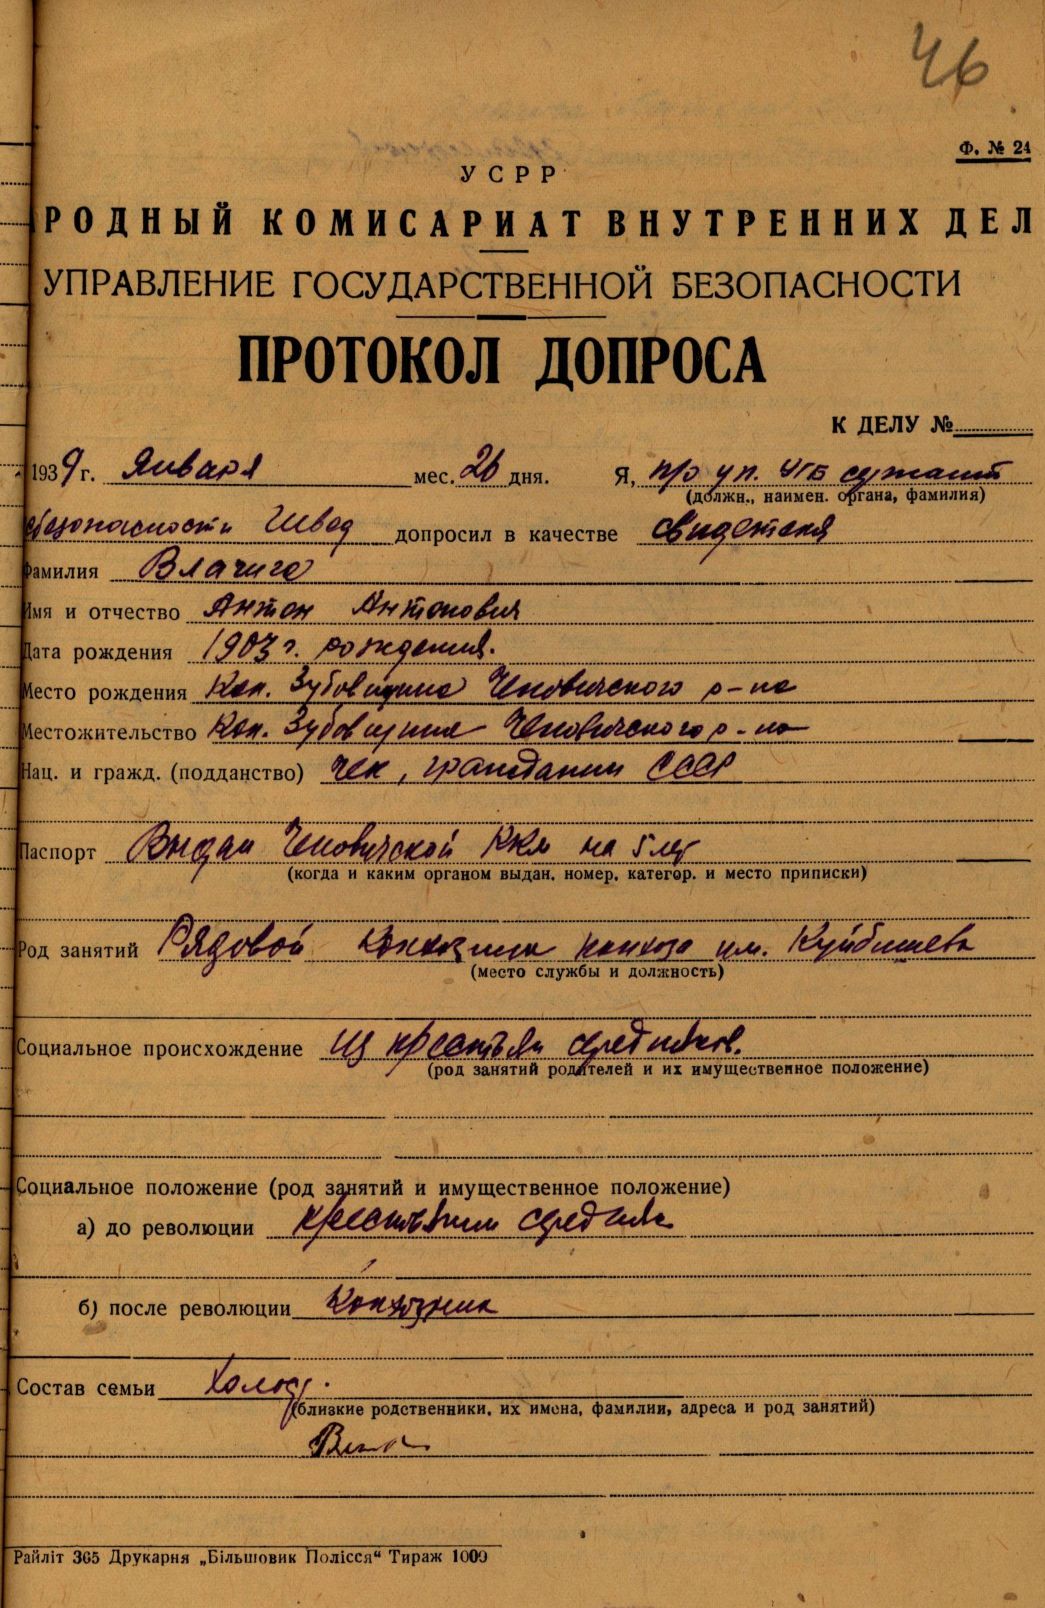 46
Ф. № 24
УСРР
РОДНЫЙ КОМИСАРИАТ ВНУТРЕННИХ ДЕЛ
УПРАВЛЕНИЕ ГОСУДАРСТВЕННОЙ БЕЗОПАСНОСТИ
ПРОТОКОЛ ДОПРОСА
К ДЕЛУ №
1939 г. Января мес. 26 дня. Я, п/о уп. УГБ сержант
(должн., наимен. органа, фамилия)
безопасности Швед допросил в качестве свидетеля
Фамилия
Имя и отчество Антон Антонович
Дата рождения 1903 г. рождения.
Место рождения Кол. Зубовщина р-на
Местожительство Кол. Зубовщина р-на
Нац. и гражд. (подданство) чех, гражданин СССР
Паспорт Выдан РКМ на 5 лет
(когда и каким органом выдан, номер, категор. и место приписки)
Род занятий Рядовой колхозник колхоза им. Куйбишева
(место службы и должность)
Социальное происхождение из крестьян средняков.
(род занятий родителей и их имущественное положение)
Социальное положение (род занятий и имущественное положение)
а) до революции крестьянин средняк
б) после революции Колхозник
Состав семьи Холост.
(близкие родственники, их имена, фамилии, адреса и род занятий)
Райліт 365 Друкарня „Більшовик Полісся“ Тираж 1000